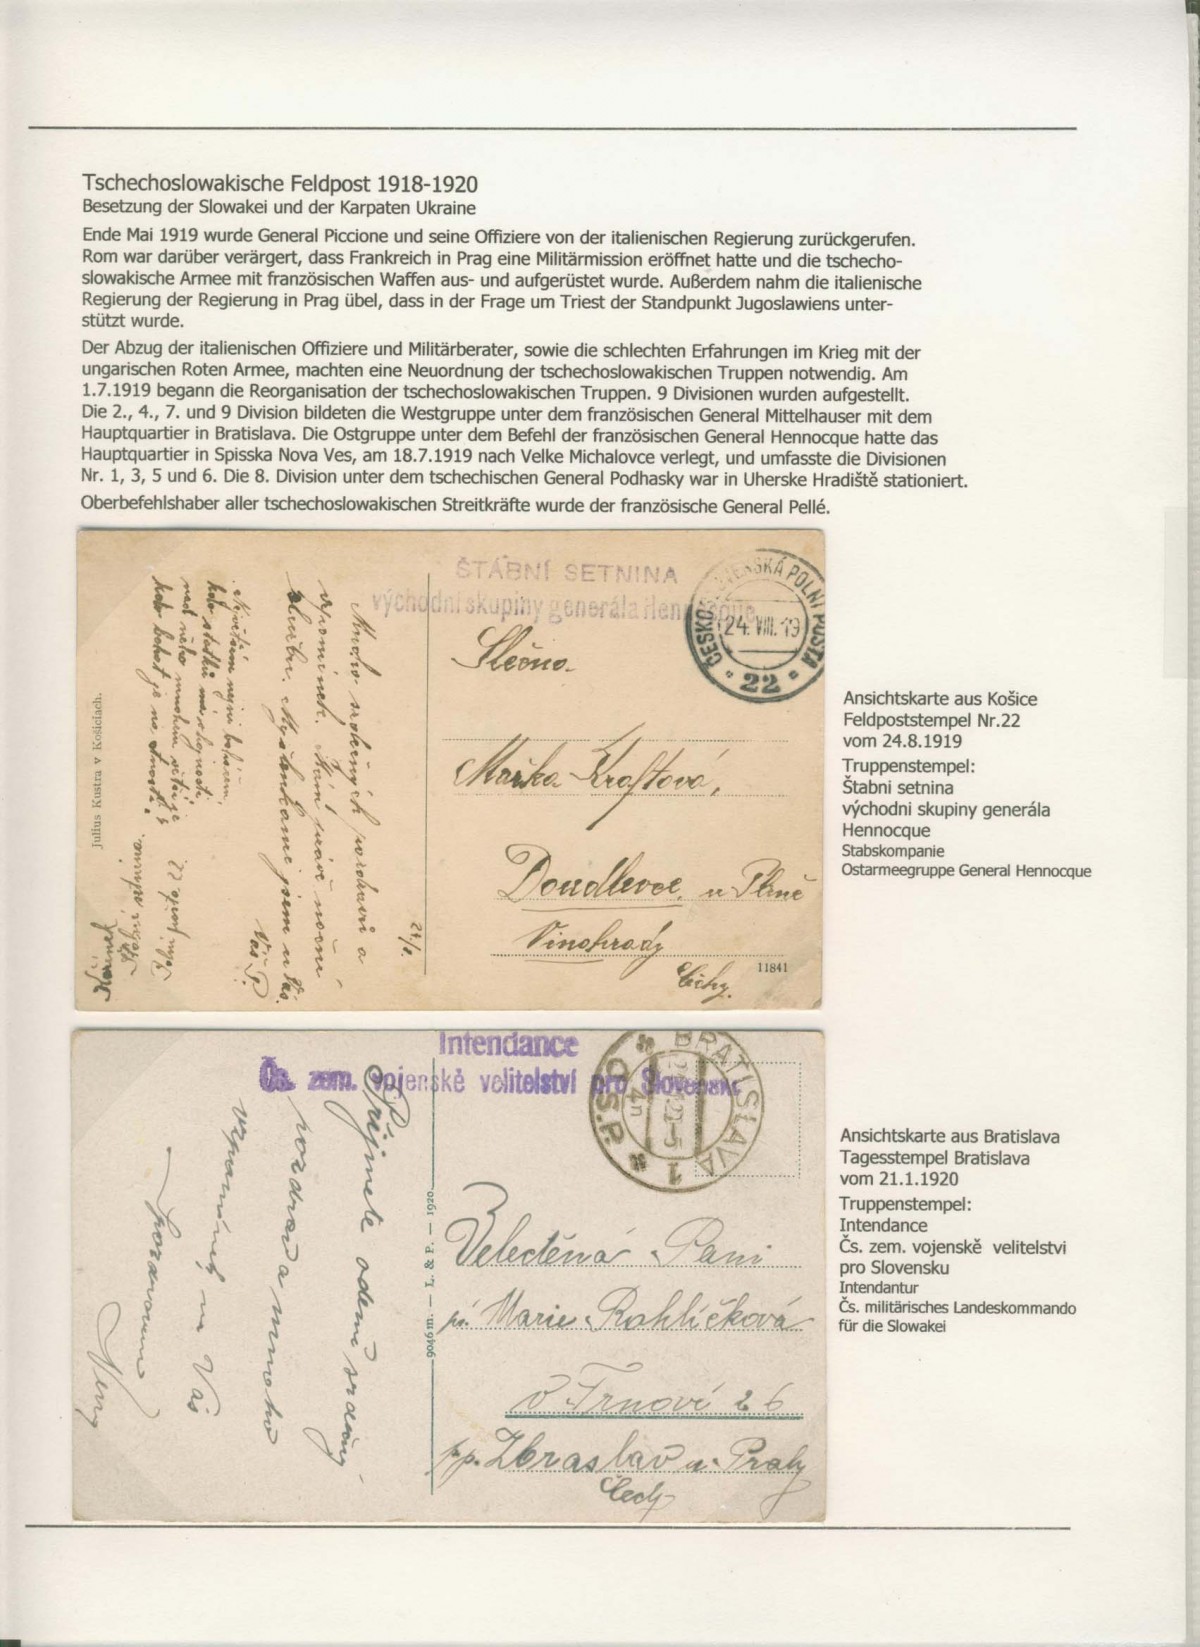 Tschechoslowakische Feldpost 1918-1920
Besetzung der Slowakei und der Karpaten Ukraine
Ende Mai 1919 wurde General Piccione und seine Offiziere von der italienischen Regierung zurückgerufen.
Rom war darüber verärgert, dass Frankreich in Prag eine Militärmission eröffnet hatte und die tschecho-
slowakische Armee mit französischen Waffen aus- und aufgerüstet wurde. Außerdem nahm die italienische
Regierung der Regierung in Prag übel, dass in der Frage um Triest der Standpunkt Jugoslawiens unter-
stützt wurde.
Der Abzug der italienischen Offiziere und Militärberater, sowie die schlechten Erfahrungen im Krieg mit der
ungarischen Roten Armee, machten eine Neuordnung der tschechoslowakischen Truppen notwendig. Am
1.7.1919 begann die Reorganisation der tschechoslowakischen Truppen. 9 Divisionen wurden aufgestellt.
Die 2., 4., 7. und 9 Division bildeten die Westgruppe unter dem französischen General Mittelhauser mit dem
Hauptquartier in Bratislava. Die Ostgruppe unter dem Befehl der französischen General Hennocque hatte das
Hauptquartier in Spisska Nova Ves, am 18.7.1919 nach Velke Michalovce verlegt, und umfasste die Divisionen
Nr. 1, 3, 5 und 6. Die 8. Division unter dem tschechischen General Podhasky war in Uherske Hradiště stationiert.
Oberbefehlshaber aller tschechoslowakischen Streitkräfte wurde der französische General Pellé.
ŠTÁBNÍ SETNINA
východní skupiny generála Hennocque
ČESKOSLOVENSKÁ POLNÍ POŠTA
24. VIII. 19
22
Slečna
Mařka Kraftová,
Doudlevce, u Plzně
Vinohrady
Čechy.
11841
Julius Kustra v Košiciach.
24/8.
Mnoho srdečných pozdravů a
vzpomínek. Mám právě noční
službu. Myšlenkami jsem u Vás.
Váš P.
Kořínek
Štábní setnina.
Polní pošta 22
Ansichtskarte aus Košice
Feldpoststempel Nr.22
vom 24.8.1919
Truppenstempel:
Štabni setnina
východni skupiny generála
Hennocque
Stabskompanie
Ostarmeegruppe General Hennocque
Intendance
Čs. zem. vojenské velitelství pro Slovensko
BRATISLAVA
Č.S.P.
1
4n
Přijměte odemě srdečný
pozdrav a mnoho
vzpomínek na Vás
9046 m. — L. & P. — 1920.
Velectěná Paní
pí. Marie Rohlíčková
v Trnové 26
pp. Zbraslav u Prahy
Čechy
Ansichtskarte aus Bratislava
Tagesstempel Bratislava
vom 21.1.1920
Truppenstempel:
Intendance
Čs. zem. vojenskě velitelstvi
pro Slovensku
Intendantur
Čs. militärisches Landeskommando
für die Slowakei